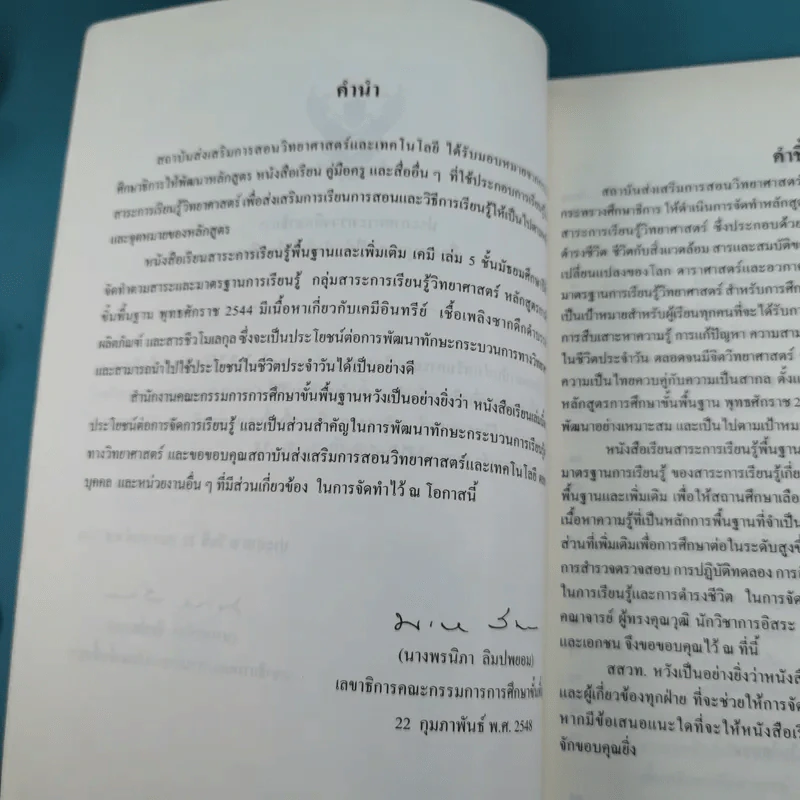 คำนำ
สถาบันส่งเสริมการสอนวิทยาศาสตร์และเทคโนโลยี ได้รับมอบหมายจาก
ศึกษาธิการให้พัฒนาหลักสูตร หนังสือเรียน คู่มือครู และสื่ออื่น ๆ ที่ใช้ประกอบการเรียนรู้
สาระการเรียนรู้วิทยาศาสตร์ เพื่อส่งเสริมการเรียนการสอนและวิธีการเรียนรู้ให้เป็นไปตาม
และจุดหมายของหลักสูตร
หนังสือเรียนสาระการเรียนรู้พื้นฐานและเพิ่มเติม เคมี เล่ม 5 ชั้นมัธยมศึกษา
จัดทำตามสาระและมาตรฐานการเรียนรู้ กลุ่มสาระการเรียนรู้วิทยาศาสตร์ หลักสูตร
ขั้นพื้นฐาน พุทธศักราช 2544 มีเนื้อหาเกี่ยวกับเคมีอินทรีย์ เชื้อเพลิงซากดึกดำบรรพ์
ผลิตภัณฑ์ และสารชีวโมเลกุล ซึ่งจะเป็นประโยชน์ต่อการพัฒนาทักษะกระบวนการทาง
และสามารถนำไปใช้ประโยชน์ในชีวิตประจำวันได้เป็นอย่างดี
สำนักงานคณะกรรมการการศึกษาขั้นพื้นฐานหวังเป็นอย่างยิ่งว่า หนังสือเรียนเล่มนี้
ประโยชน์ต่อการจัดการเรียนรู้ และเป็นส่วนสำคัญในการพัฒนาทักษะกระบวนการเรียนรู้
ทางวิทยาศาสตร์ และขอขอบคุณสถาบันส่งเสริมการสอนวิทยาศาสตร์และเทคโนโลยี
บุคคล และหน่วยงานอื่น ๆ ที่มีส่วนเกี่ยวข้อง ในการจัดทำไว้ ณ โอกาสนี้
(นางพรนิภา ลิมปพยอม)
เลขาธิการคณะกรรมการการศึกษาขั้น
22 กุมภาพันธ์ พ.ศ. 2548
สถาบันส่งเสริมการสอนวิทยาศาสตร์
กระทรวงศึกษาธิการ ให้ดำเนินการจัดทำหลักสู
สาระการเรียนรู้วิทยาศาสตร์ ซึ่งประกอบด้วย
ดำรงชีวิต ชีวิตกับสิ่งแวดล้อม สารและสมบัติข
เปลี่ยนแปลงของโลก ดาราศาสตร์และอวกา
มาตรฐานการเรียนรู้วิทยาศาสตร์ สำหรับการศึก
เป็นเป้าหมายสำหรับผู้เรียนทุกคนที่จะได้รับกา
การสืบเสาะหาความรู้ การแก้ปัญหา ความสาม
ในชีวิตประจำวัน ตลอดจนมีจิตวิทยาศาสตร์
ความเป็นไทยควบคู่กับความเป็นสากล ตั้งแ
หลักสูตรการศึกษาขั้นพื้นฐาน พุทธศักราช 2
พัฒนาอย่างเหมาะสม และเป็นไปตามเป้าหม
หนังสือเรียนสาระการเรียนรู้พื้นฐาน
มาตรฐานการเรียนรู้ ของสาระการเรียนรู้เกี่ย
พื้นฐานและเพิ่มเติม เพื่อให้สถานศึกษาเลือ
เนื้อหาความรู้ที่เป็นหลักการพื้นฐานที่จำเป็น
ส่วนที่เพิ่มเติมเพื่อการศึกษาต่อในระดับสูงขึ้
การสำรวจตรวจสอบ การปฏิบัติทดลอง การสื
ในการเรียนรู้และการดำรงชีวิต ในการจัด
คณาจารย์ ผู้ทรงคุณวุฒิ นักวิชาการอิสระ
และเอกชน จึงขอขอบคุณไว้ ณ ที่นี้
สสวท. หวังเป็นอย่างยิ่งว่าหนังสื
และผู้เกี่ยวข้องทุกฝ่าย ที่จะช่วยให้การจัด
หากมีข้อเสนอแนะใดที่จะให้หนังสือเรี
จักขอบคุณยิ่ง